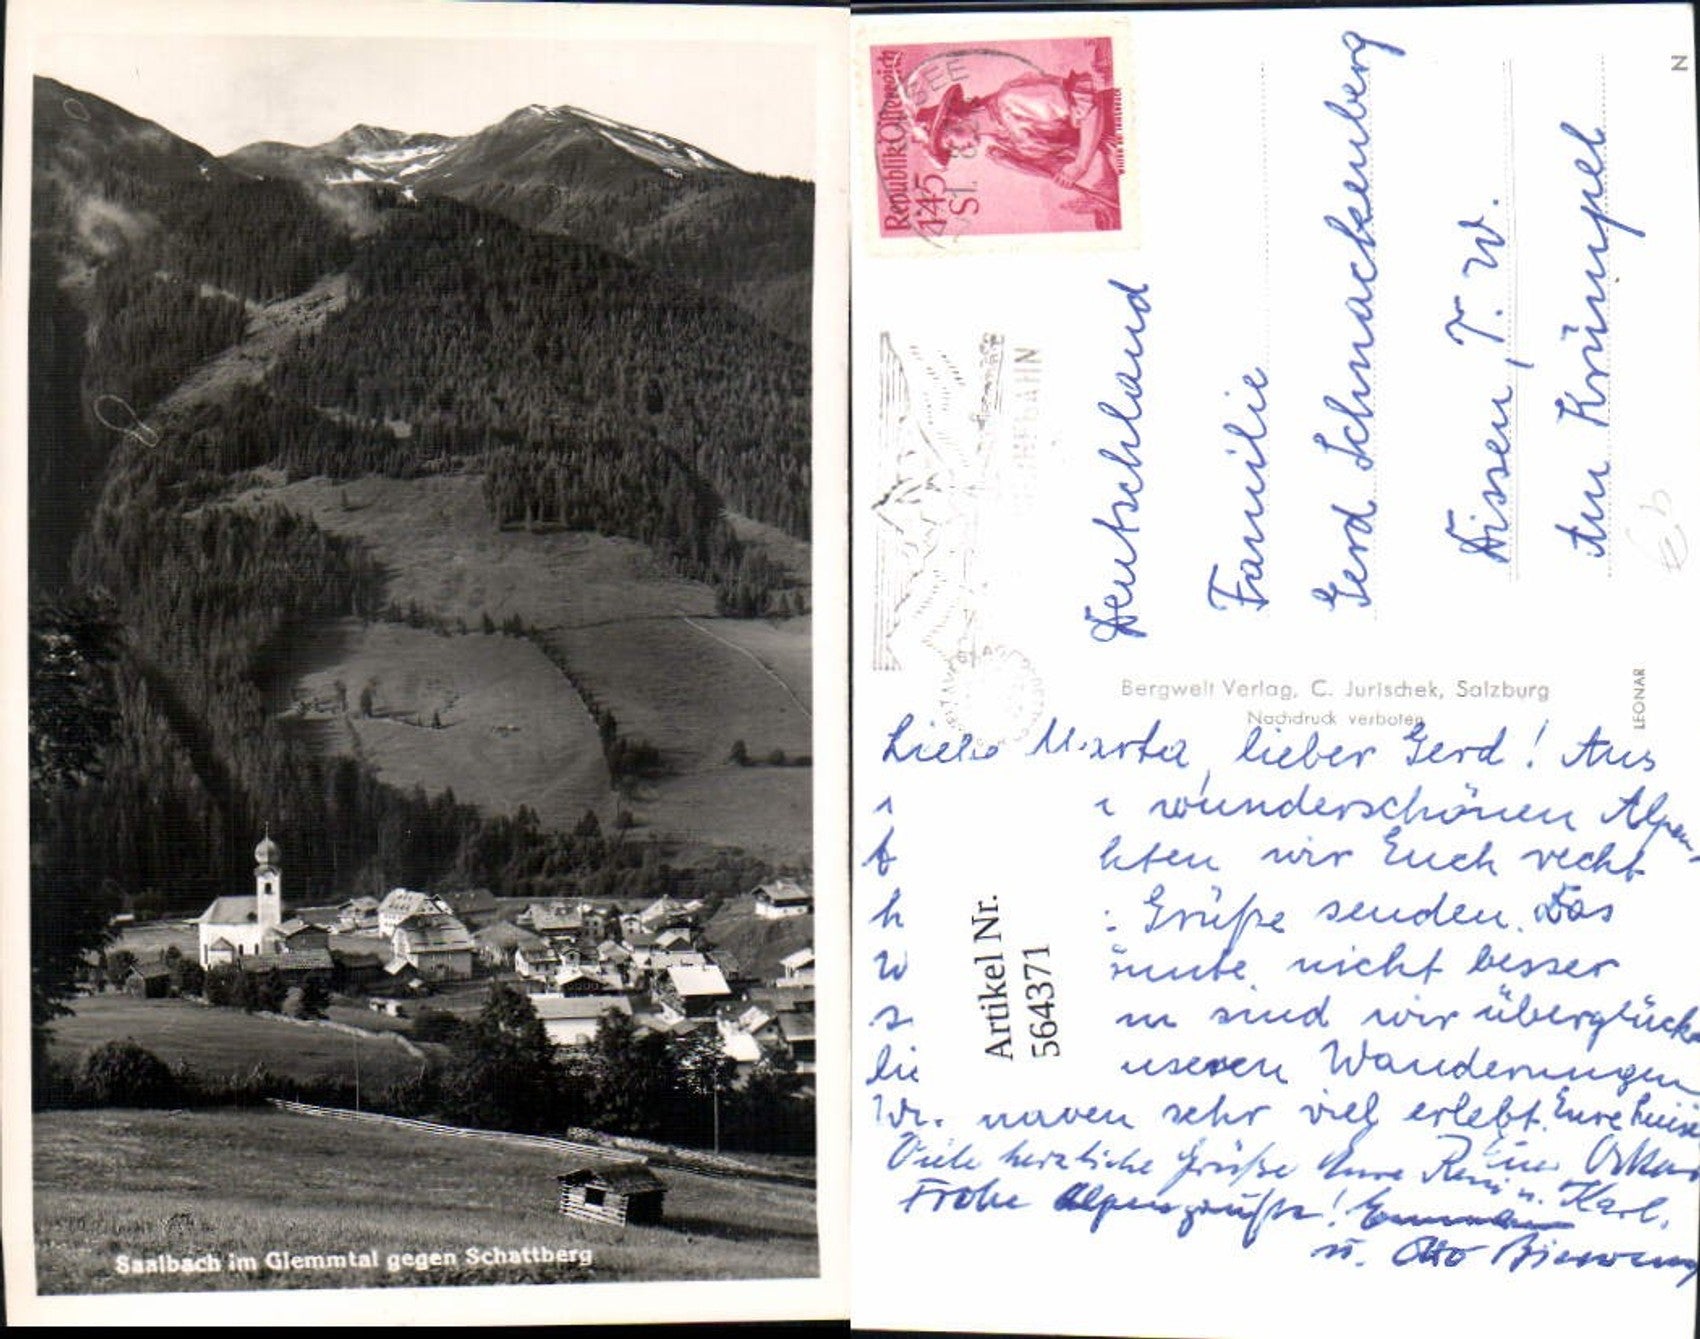 Saalbach im Glemmtal gegen Schattberg
Republik Österreich
1.45
St.
SEE
BAHN
Deutschland
Familie
Gerd Schnackenberg
Dissen, T.W.
Am Krümpel
N
Bergwelt Verlag, C. Jurischek, Salzburg
Nachdruck verboten
LEONAR
Artikel Nr.
564371
Liebe Marta, lieber Gerd! Aus
wunderschönen Alpen-
hten wir Euch recht
h : Grüße senden. Das
W önnte nicht besser
s. sind wir überglück-
lic unseren Wanderungen
Wi. haben sehr viel erlebt. Eure Luise
Viele herzliche Grüße Eure Reni u. Karl.
Euer Oskar
Frohe Alpengrüße!
u. Otto